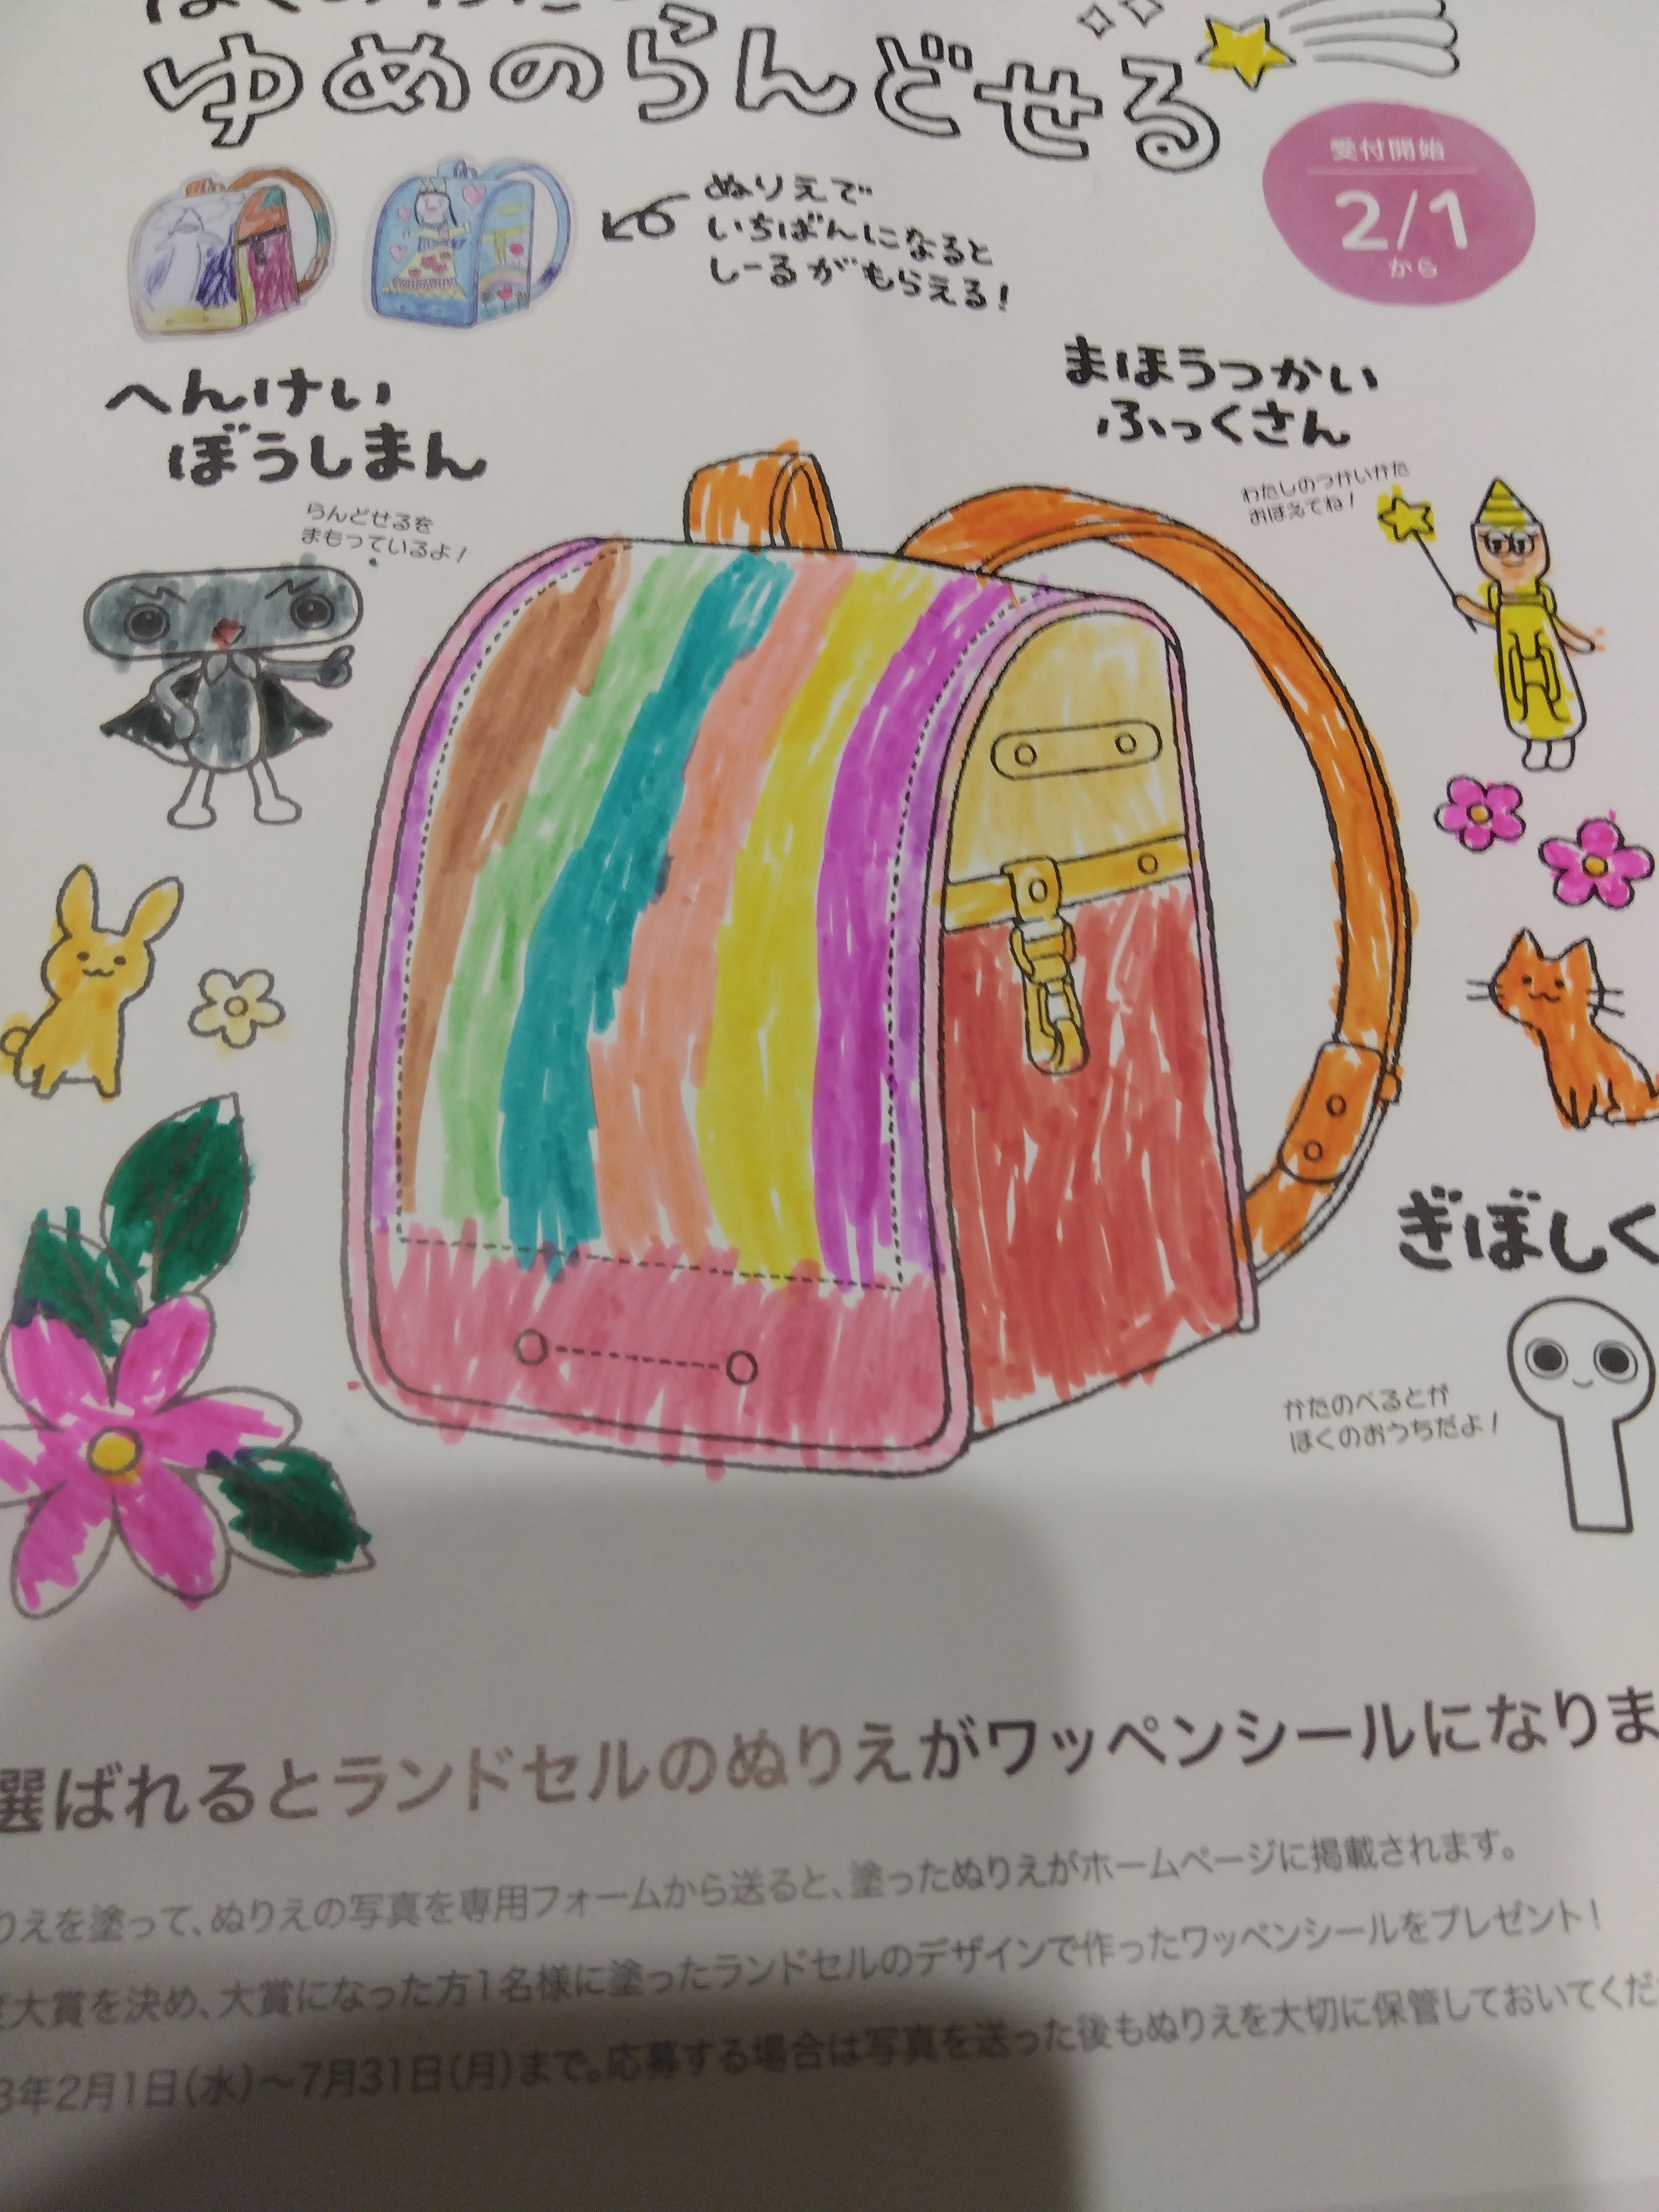 ゆめのらんどせる
受付開始
2/1
から
ぬりえで
いちばんになると
しーるがもらえる！
へんけい
ぼうしまん
らんどせるを
まもっているよ！
まほうつかい
ふっくさん
わたしのつかいかた
おぼえてね！
ぎぼしく
かたのべるとが
ぼくのおうちだよ！
選ばれるとランドセルのぬりえがワッペンシールになりま
りえを塗って、ぬりえの写真を専用フォームから送ると、塗ったぬりえがホームページに掲載されます。
大賞を決め、大賞になった方1名様に塗ったランドセルのデザインで作ったワッペンシールをプレゼント！
3年2月1日(水)～7月31日(月)まで。応募する場合は写真を送った後もぬりえを大切に保管しておいてくだ